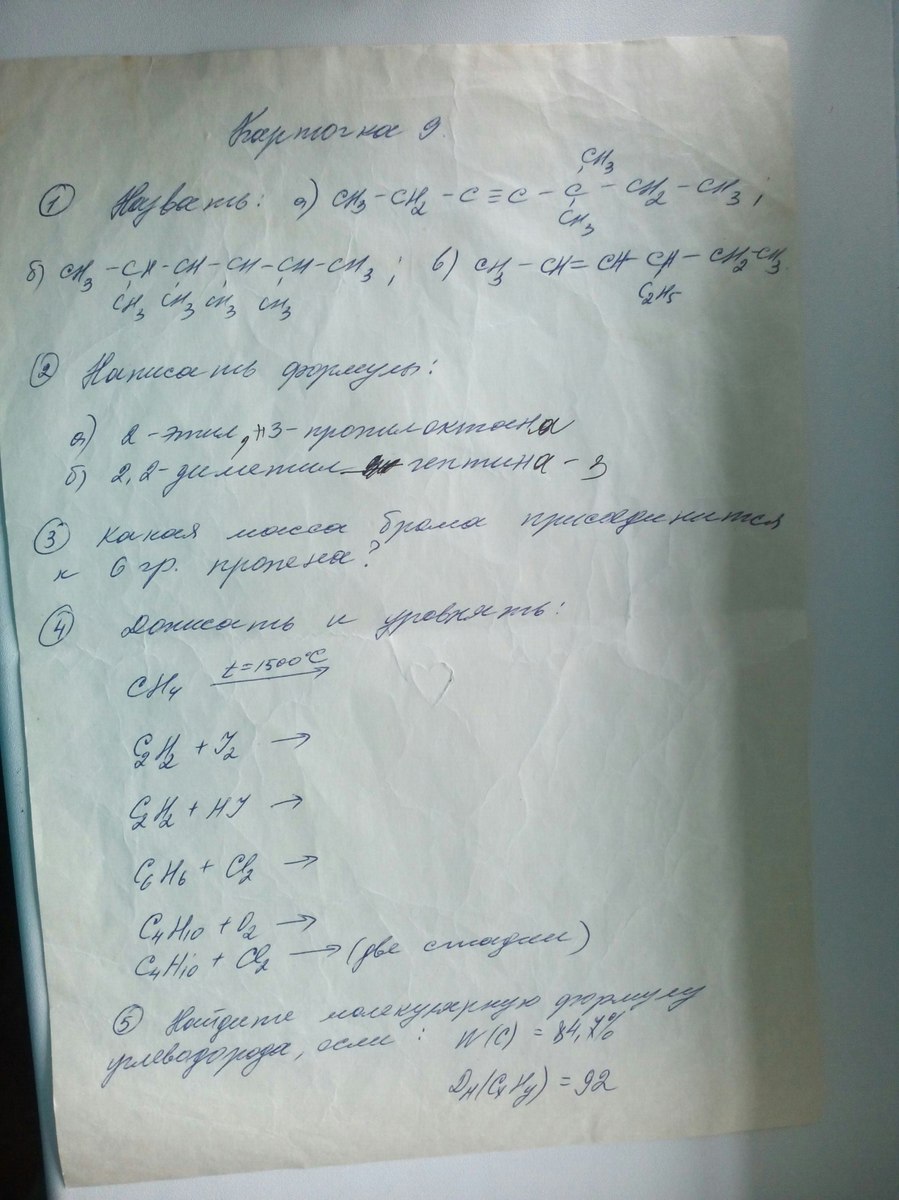 Карточка 9.
CH3
① Назвать: а) CH3-CH2-C≡C-C-CH2-CH3;
CH3
б) CH3-CH-CH-CH-CH-CH3; в) CH3-CH=CH-CH-CH2-CH3
CH3 CH3 CH3 CH3 C2H5
② Написать формулы:
а) 2-этил, 3-пропилоктана
б) 2,2-диметил гептина-3
③ Какая масса брома присоединится
к 6 гр. пропена?
④ Дописать и уровнять:
CH4 t=1500°C →
C2H2 + J2 →
C2H2 + HJ →
C6H6 + Cl2 →
C4H10 + O2 →
C4H10 + Cl2 → (две стадии)
⑤ Найдите молекулярную формулу
углеводорода, если: W(C) = 84,7%
DH(CxHy) = 92